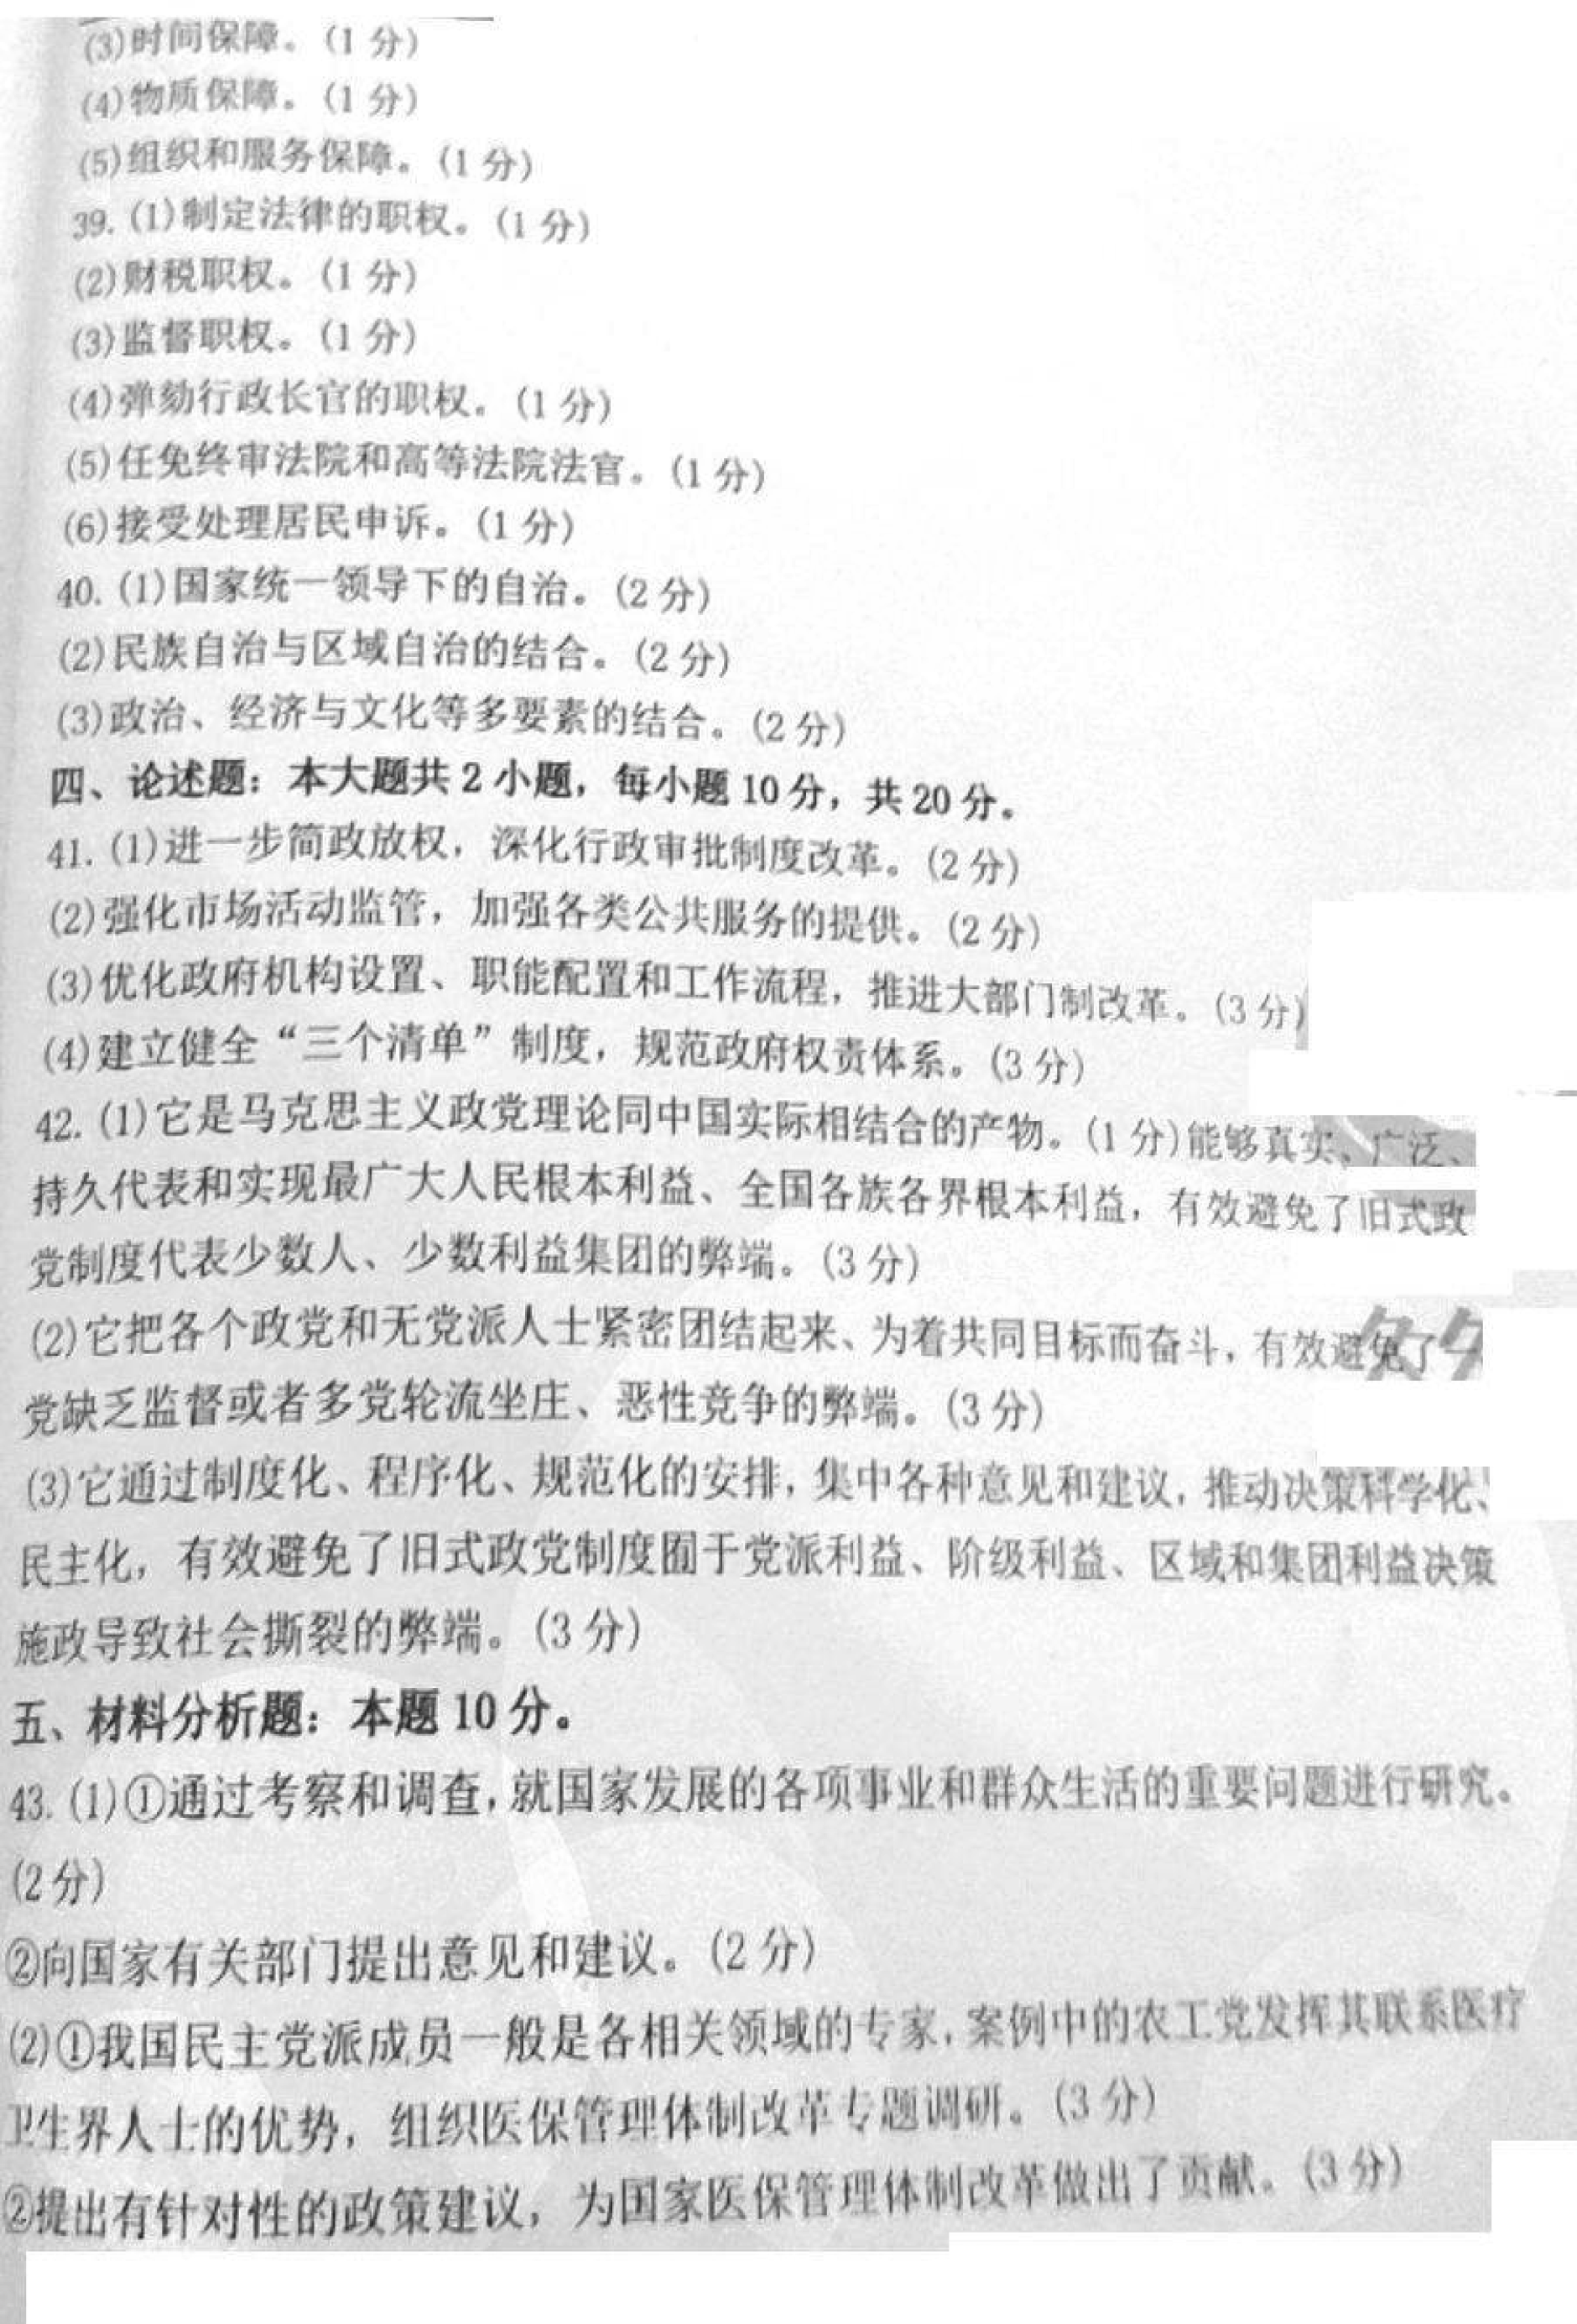 (3)时间保障。(1分)
(4)物质保障。(1分)
(5)组织和服务保障。(1分)
39. (1)制定法律的职权。(1分)
(2)财税职权。(1分)
(3)监督职权。(1分)
(4)弹劾行政长官的职权。(1分)
(5)任免终审法院和高等法院法官。(1分)
(6)接受处理居民申诉。(1分)
40. (1)国家统一领导下的自治。(2分)
(2)民族自治与区域自治的结合。(2分)
(3)政治、经济与文化等多要素的结合。(2分)
四、论述题：本大题共2小题，每小题10分，共20分。
41. (1)进一步简政放权，深化行政审批制度改革。(2分)
(2)强化市场活动监管，加强各类公共服务的提供。(2分)
(3)优化政府机构设置、职能配置和工作流程，推进大部门制改革。(3分)
(4)建立健全“三个清单”制度，规范政府权责体系。(3分)
42. (1)它是马克思主义政党理论同中国实际相结合的产物。(1分)能够真实、广泛、
持久代表和实现最广大人民根本利益、全国各族各界根本利益，有效避免了旧式政
党制度代表少数人、少数利益集团的弊端。(3分)
(2)它把各个政党和无党派人士紧密团结起来、为着共同目标而奋斗，有效避免了
党缺乏监督或者多党轮流坐庄、恶性竞争的弊端。(3分)
(3)它通过制度化、程序化、规范化的安排，集中各种意见和建议，推动决策科学化、
民主化，有效避免了旧式政党制度囿于党派利益、阶级利益、区域和集团利益决策
施政导致社会撕裂的弊端。(3分)
五、材料分析题：本题10分。
43. (1)①通过考察和调查，就国家发展的各项事业和群众生活的重要问题进行研究。
(2分)
②向国家有关部门提出意见和建议。(2分)
(2)①我国民主党派成员一般是各相关领域的专家，案例中的农工党发挥其联系医疗
卫生界人士的优势，组织医保管理体制改革专题调研。(3分)
②提出有针对性的政策建议，为国家医保管理体制改革做出了贡献。(3分)